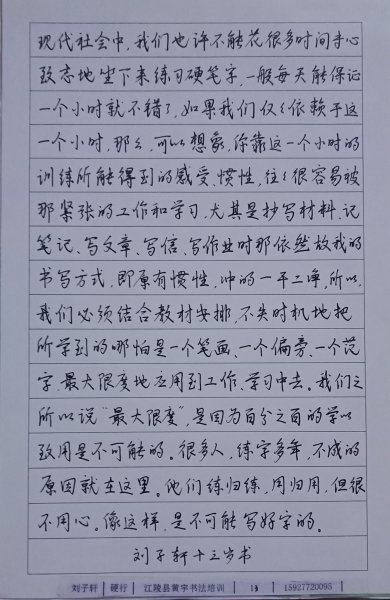 现代社会中，我们也许不能花很多时间专心
致志地坐下来练习硬笔字，一般每天能保证
一个小时就不错了，如果我们仅仅依赖于这
一个小时，那么，可以想象，你靠这一个小时的
训练所能得到的感受、惯性，往往很容易被
那紧张的工作和学习，尤其是抄写材料、记
笔记、写文章、写信、写作业时那依然故我的
书写方式，即原有惯性，冲的一干二净，所以，
我们必须结合教材安排，不失时机地把
所学到的哪怕是一个笔画、一个偏旁、一个范
字，最大限度地应用到工作、学习中去。我们之
所以说“最大限度”，是因为百分之百的学以
致用是不可能的。很多人，练字多年，不成的
原因就在这里。他们练归练，用归用，但很
不用心。像这样，是不可能写好字的。
刘子轩十三岁书
刘子轩 硬行 江陵县黄宇书法培训 13 15927720095